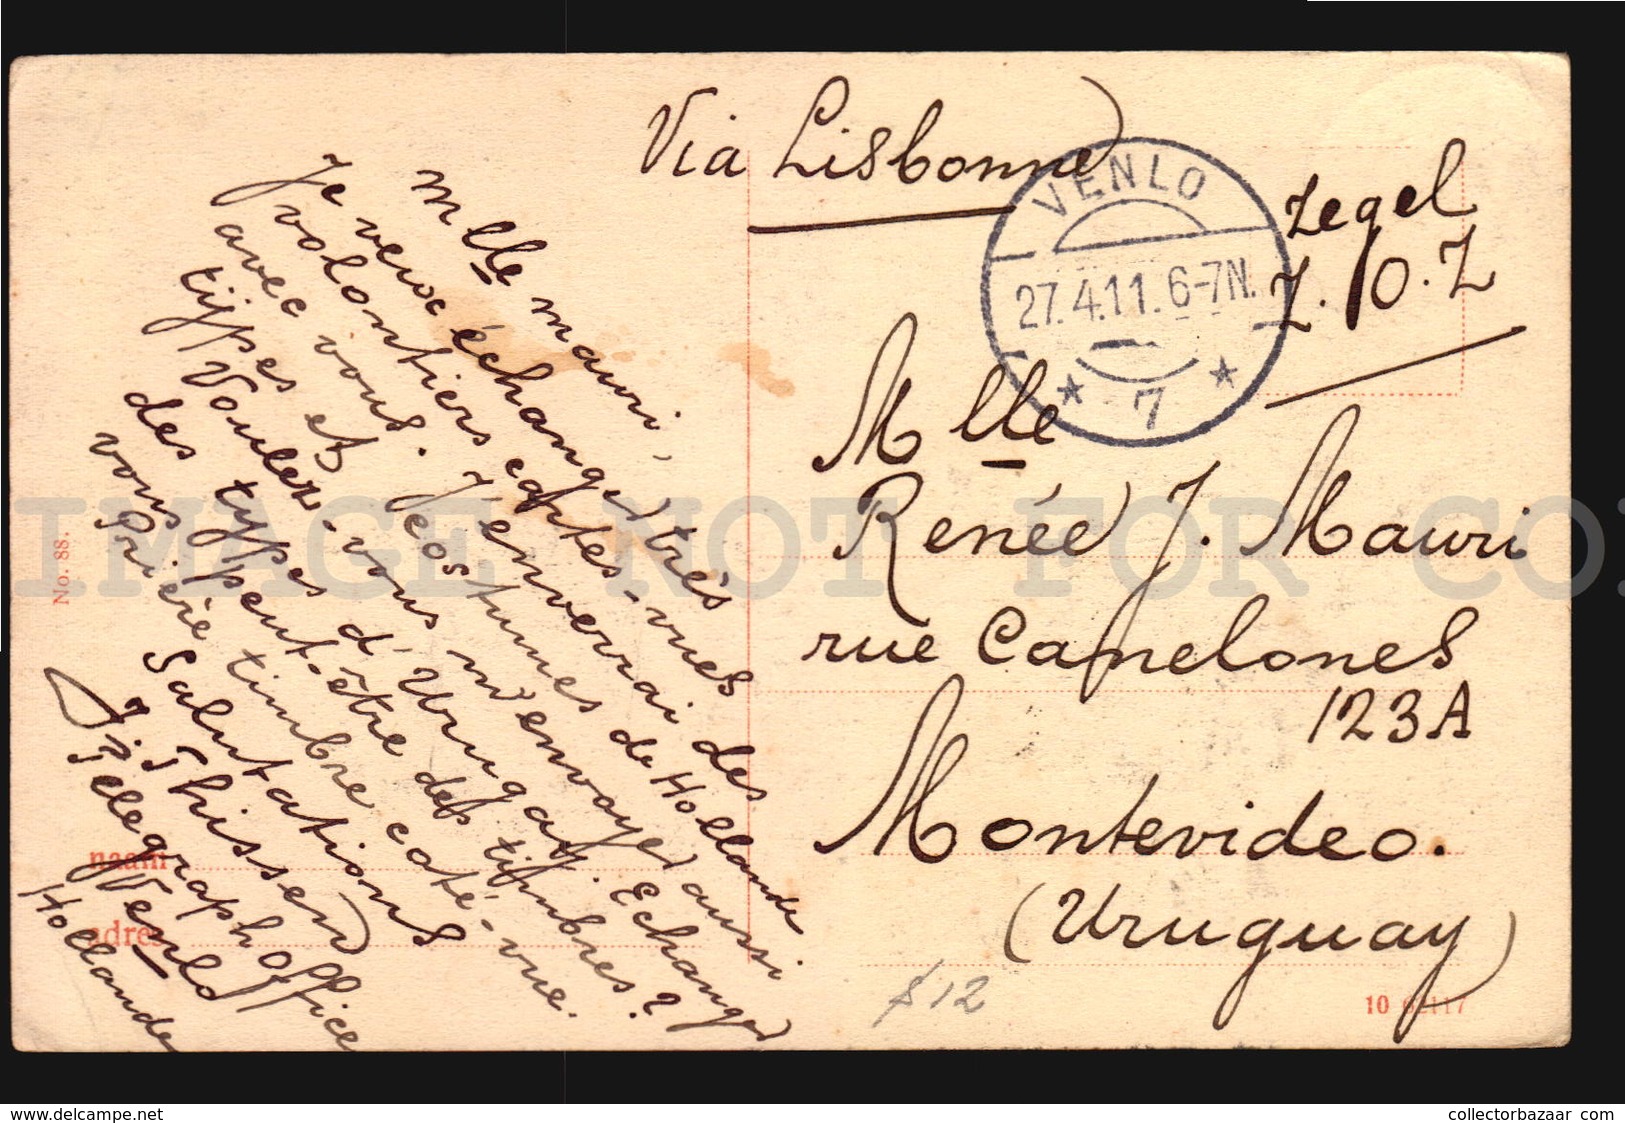 Via Lisbonne
VENLO
27.4.11.6-7N.
7
zegel
z.O.Z
Mlle
Renée J. Mauri
rue Canelones
123A
Montevideo.
(Uruguay)
Mlle Mauri,
Je veux échanger très
volontiers cartes-vues
avec vous. J'enverrai des
types et costumes de Hollande
Voulez-vous m'envoyer aussi
des types d'Uruguay. Echanger
vous peut-être des timbres?
Prière timbre coté-vue.
Salutations
J. J. Thissen
Telegraph Office
Venlo
Hollande
No. 88.
naam
adres
$12
10
IMAGE NOT FOR CO
www.delcampe.net
collectorbazaar com